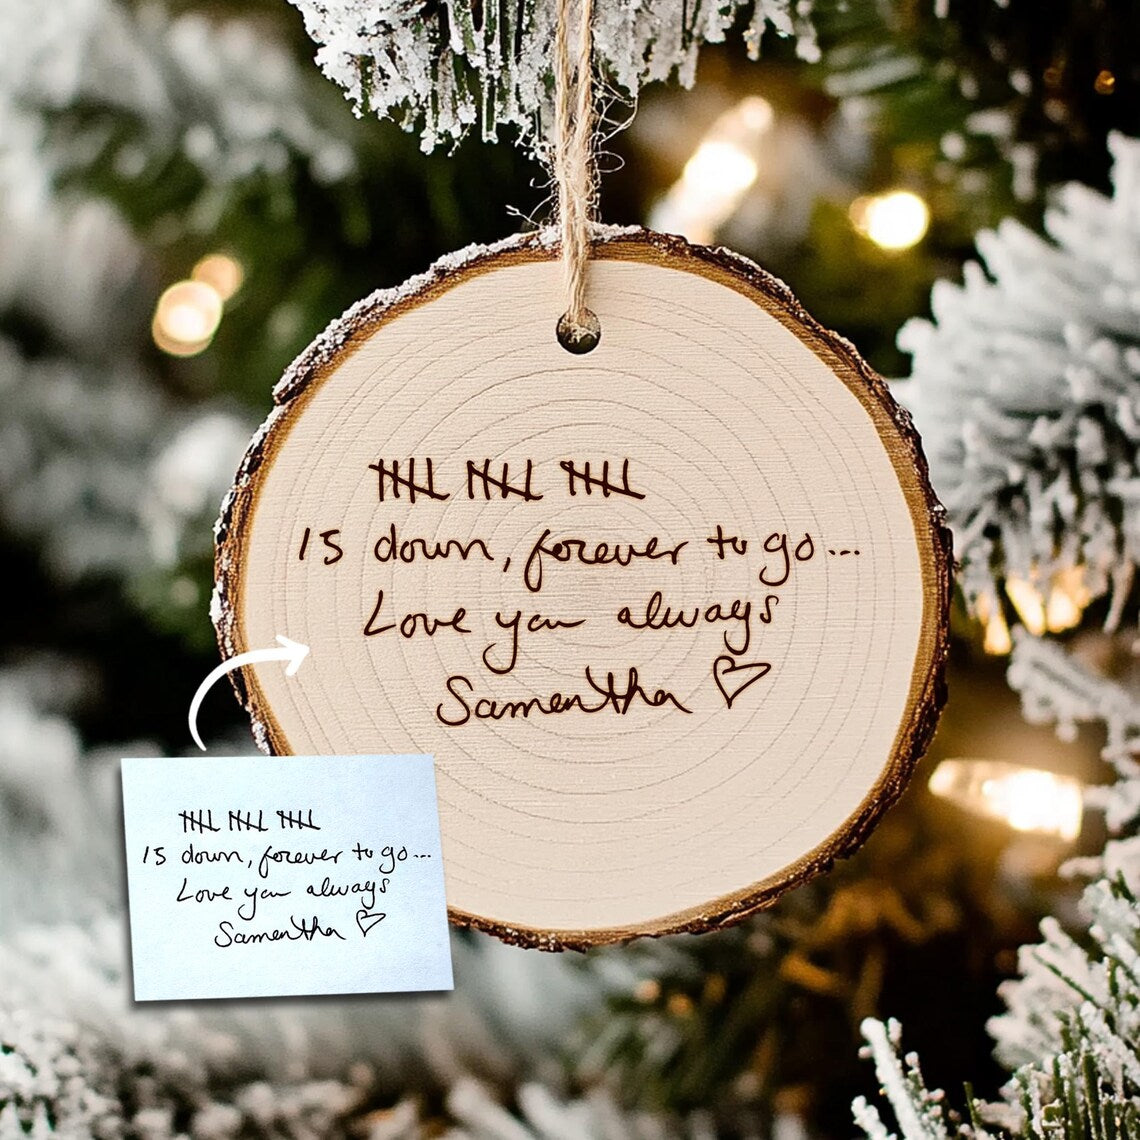 𝍸 𝍸 𝍸
15 down, forever to go...
Love you always
Samantha ♡
𝍸 𝍸 𝍸
15 down, forever to go...
Love you always
Samantha ♡